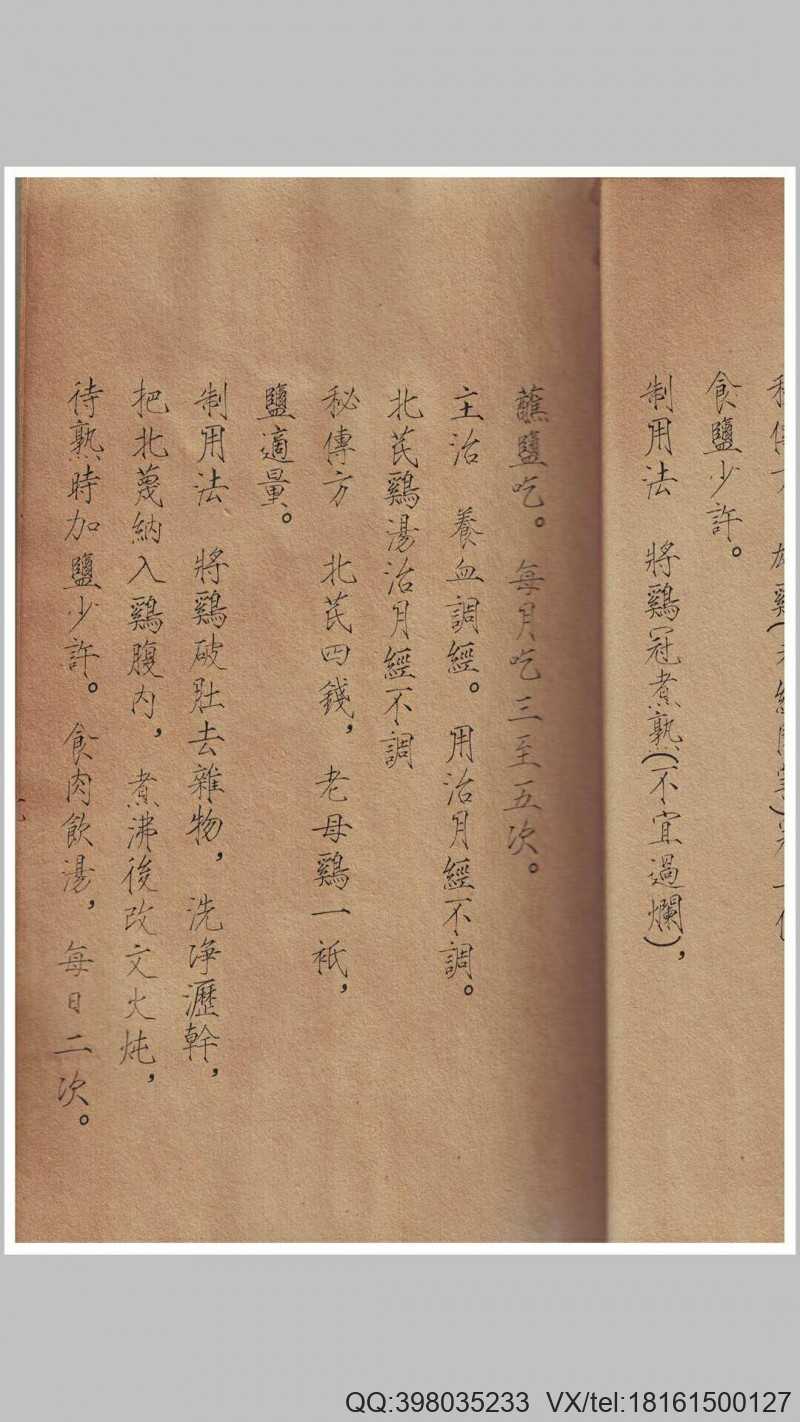 食鹽少許。
制用法 將鷄冠煮熟(不宜過爛),
蘸鹽吃。每月吃三至五次。
主治 養血調經。用治月經不調。
北芪鷄湯治月經不調
秘傳方 北芪四錢,老母鷄一衹,
鹽適量。
制用法 將鷄破肚去雜物,洗净瀝幹,
把北蓂納入鷄腹内,煮沸後改文火炖,
待熟時加鹽少許。食肉飲湯,每日二次。
QQ:398035233 VX/tel:18161500127